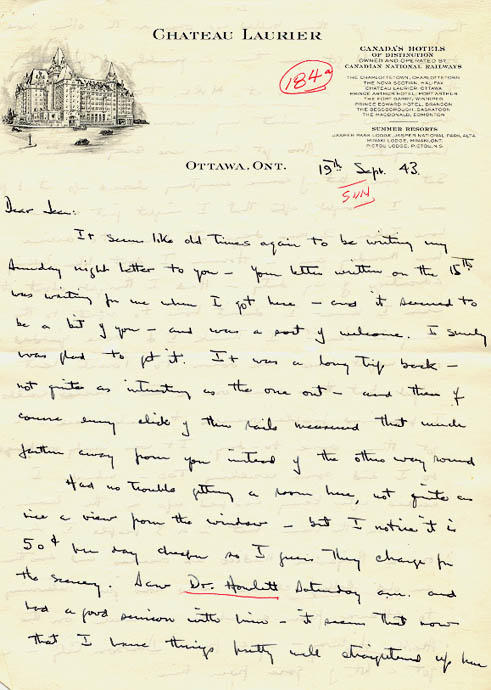 CHATEAU LAURIER
CANADA'S HOTELS
OF DISTINCTION
OWNED AND OPERATED BY
CANADIAN NATIONAL RAILWAYS
THE CHARLOTTETOWN, CHARLOTTETOWN
THE NOVA SCOTIAN, HALIFAX
CHATEAU LAURIER, OTTAWA
PRINCE ARTHUR HOTEL, PORT ARTHUR
THE FORT GARRY, WINNIPEG
PRINCE EDWARD HOTEL, BRANDON
THE BESSBOROUGH, SASKATOON
THE MACDONALD, EDMONTON
SUMMER RESORTS
JASPER PARK LODGE, JASPER NATIONAL PARK, ALTA.
MINAKI LODGE, MINAKI, ONT.
PICTOU LODGE, PICTOU, N.S.
184a
OTTAWA, ONT. 19th Sept. 43.
SUN
Dear Jean:
It seem like old times again to be writing my
Sunday night letter to you - Your letter written on the 15th
was waiting for me when I got here - and it seemed to
be a bit of you - and was a sort of welcome. I surely
was glad to get it. It was a long trip back -
not quite as interesting as the one out - and then of
course every click of the rails measured that much
farther away from you instead of the other way round
Had no trouble getting a room here, not quite as
nice a view from the window - but I notice it is
50¢ per day cheaper so I guess they charge for
the scenery. Saw Dr. Howlett Saturday a.m. and
had a good session with him - it seems that now
that I have things pretty well straightened up here